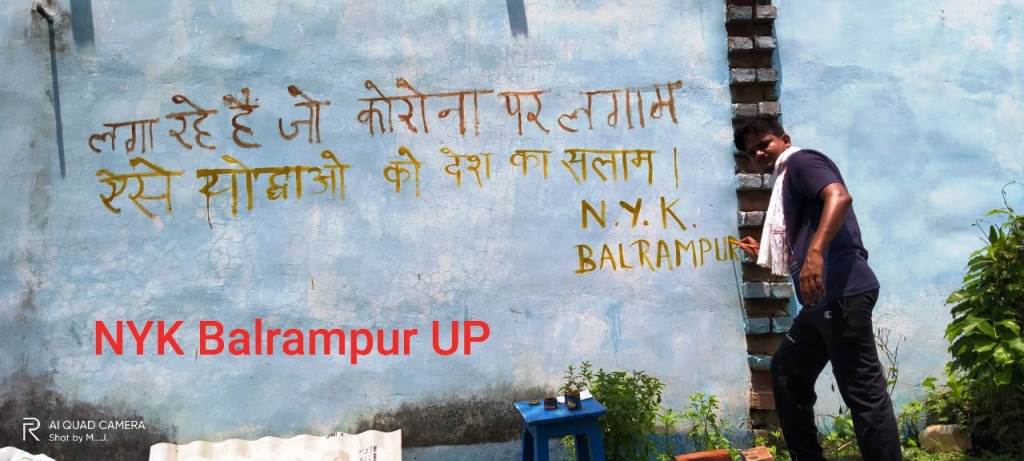 लगा रहे हैं जो कोरोना पर लगाम
ऐसे योद्धाओ को देश का सलाम।
N.Y.K.
BALRAMPUR
NYK Balrampur UP
R AI QUAD CAMERA
Shot by M...J.